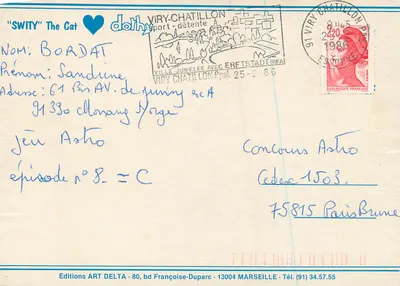 "SWITY" The Cat dolly
VIRY-CHATILLON
sport - détente
VILLE JUMELEE AVEC ERFTSTADT (RFA)
VIRY CHATILLON Ppal 25-2-86
91 VIRY CHATILLON P
8H45
1986
ESSONNE
2,20
Nom: BORDAT
Prénom: Sandrine
Adresse: 61 Bis AV. de
91330
Jeu Astro
épisode n° 8 = C
Concours Astro
Cedex 1503
75815 Paris Brune
Editions ART DELTA - 80, bd Françoise-Duparc - 13004 MARSEILLE - Tél. (91) 34.57.55